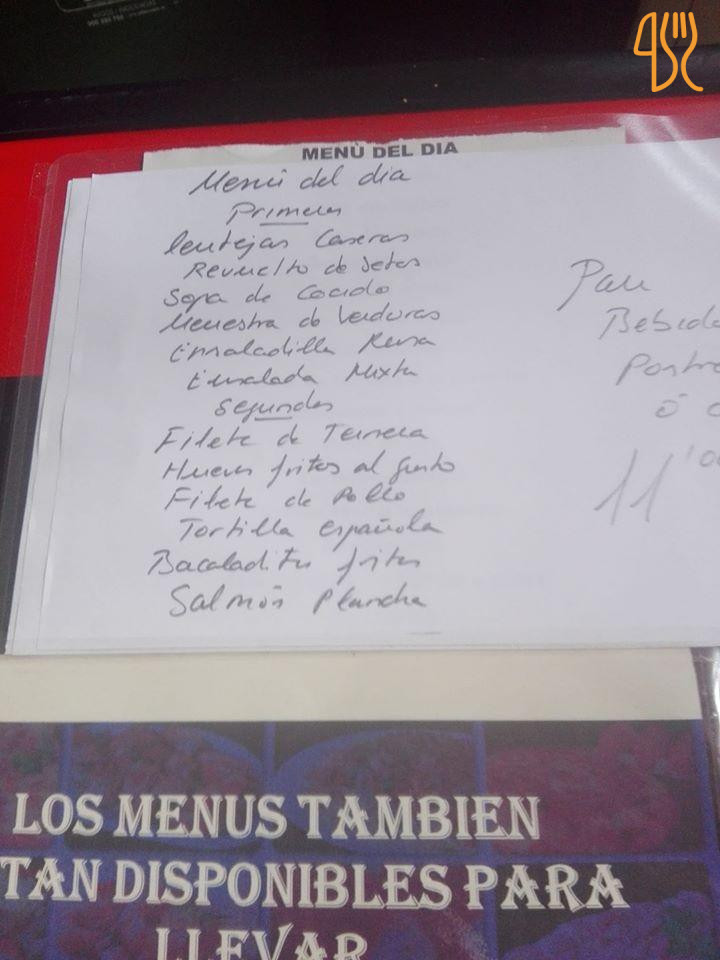 MENÙ DEL DIA
Menú del dia
Primeros
lentejas Caseras
Revuelto de Setas
Sopa de Cocido
Menestra de Verduras
Ensaladilla Rusa
Ensalada Mixta
Segundos
Filete de Ternera
Huevos fritos al gusto
Filete de Pollo
Tortilla española
Bacaladitos fritos
Salmón Plancha
Pan
Bebida
Postre
ó c
11'00
LOS MENUS TAMBIEN
TAN DISPONIBLES PARA
LLEVAR